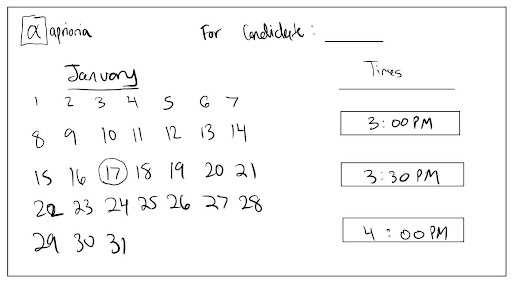 a apriora For Candidate:
January
1 2 3 4 5 6 7
8 9 10 11 12 13 14
15 16 17 18 19 20 21
22 23 24 25 26 27 28
29 30 31
Times
3:00 PM
3:30 PM
4:00 PM